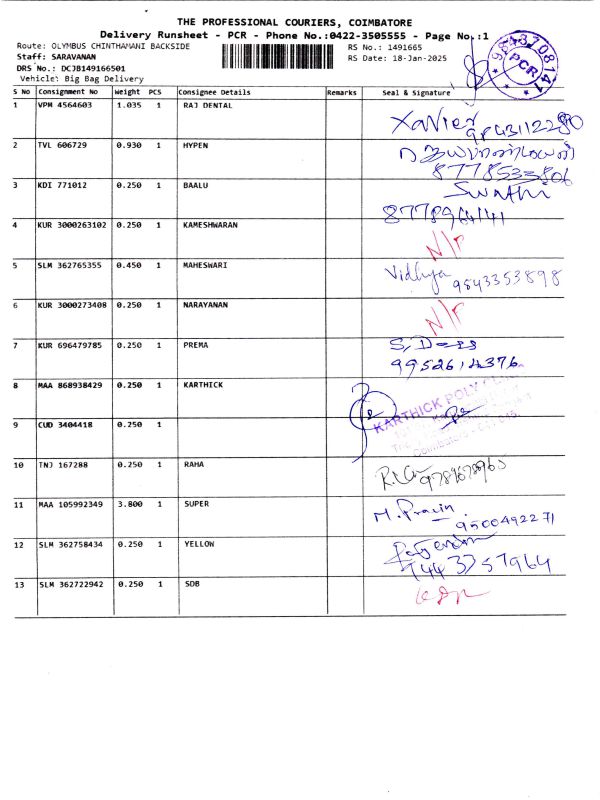 THE PROFESSIONAL COURIERS, COIMBATORE
Delivery Runsheet - PCR - Phone No.:0422-3505555 - Page No.:1
Route: OLYMBUS CHINTHAMANI BACKSIDE RS No.: 1491665
Staff: SARAVANAN RS Date: 18-Jan-2025
DRS No.: DCJB149166501
Vehicle: Big Bag Delivery
9843708141
PCR
S No Consignment No Weight PCS Consignee Details Remarks Seal & Signature
1 VPM 4564603 1.035 1 RAJ DENTAL
Xavier 9843112290
2 TVL 606729 0.930 1 HYPEN
8778533806
3 KDI 771012 0.250 1 BAALU
Swathi
8778964141
4 KUR 3000263102 0.250 1 KAMESHWARAN N/P
5 SLM 362765355 0.450 1 MAHESWARI Vidhya 9543353898
6 KUR 3000273408 0.250 1 NARAYANAN N/P
7 KUR 696479785 0.250 1 PREMA
9952614376
8 MAA 868938429 0.250 1 KARTHICK
KARTHICK POLY
9 CUD 3404418 0.250 1
10 TNJ 167288 0.250 1 RAHA
11 MAA 105992349 3.800 1 SUPER M. Pravin
9500492271
12 SLM 362758434 0.250 1 YELLOW
13 SLM 362722942 0.250 1 SDB